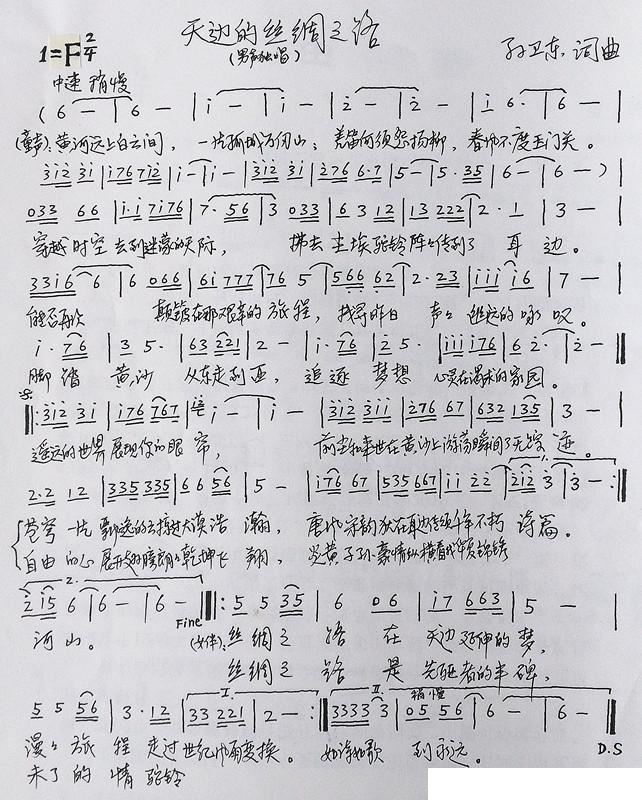 天边的丝绸之路
(男声独唱)
1=F 2/4
孙卫东 词曲
中速 稍慢
( 6 - | 6 - | i - | i - | 2 - | 2 - | i 6. | 6 - |
(童声): 黄河远上白云间, 一片孤城万仞山; 羌笛何须怨杨柳, 春风不度玉门关。
312 31 | i767i2 | i - | i - | 312 31 | 2766·7 | 5 - | 5·35 | 6 - | 6 - ) |
033 66 | i·i 7i76 | 7·56 | 3 033 | 6 3 12 | 13 222 | 2·1 | 3 - |
穿越时空去到迷蒙的天际, 拂去尘埃驼铃阵々传到了耳边。
33i6 6 | 6 066 | 6i 777 | 76 5 | 566 62 | 2·23 | iii i6 | 7 - |
能否再次 颠簸在那艰辛的旅程, 找寻昨日 声々 的咏叹。
i·76 | 3 5· | 63 221 | 2 - | i·76 | 2 5· | iiii76 | 6 2· | 2 - ‖
脚踏 黄沙 从东走到西, 追逐 梦想 心灵在渴求的家园。
‖: 312 31 | i76 767 | i - | i - | 312 3ii | 276 67 | 632 135 | 3 - |
遥远的世界展现你的眼帘, 前尘和来世在黄沙上游荡瞬间了无踪迹。
2·2 12 | 335 335 | 66 56 | 5 - | i76 67 | 535 667 | ii 22 | 2i2 3 | 3 - :‖
苍穹一片 的云掠过大漠浩瀚, 唐风宋韵 在耳边传颂千年不朽诗篇。
自由的心展开 乾坤长翔, 炎黄子孙豪情纵横看我华夏锦绣
2.
2 i5 6 | 6 - | 6 - ‖: 5 5 35 | 6 06 | i7 663 | 5 - |
Fine
河山。 (女伴): 丝绸之路在天边延伸的梦,
丝绸之路是先驱者的丰碑,
I. II. 稍慢
5 5 56 | 3·12 | 33 221 | 2 - :‖ 3333 3 | 05 56 | 6 - | 6 - :‖
漫々旅程走过世纪风雨变换。 如诗如歌 到永远。
D.S
未了的情驼铃